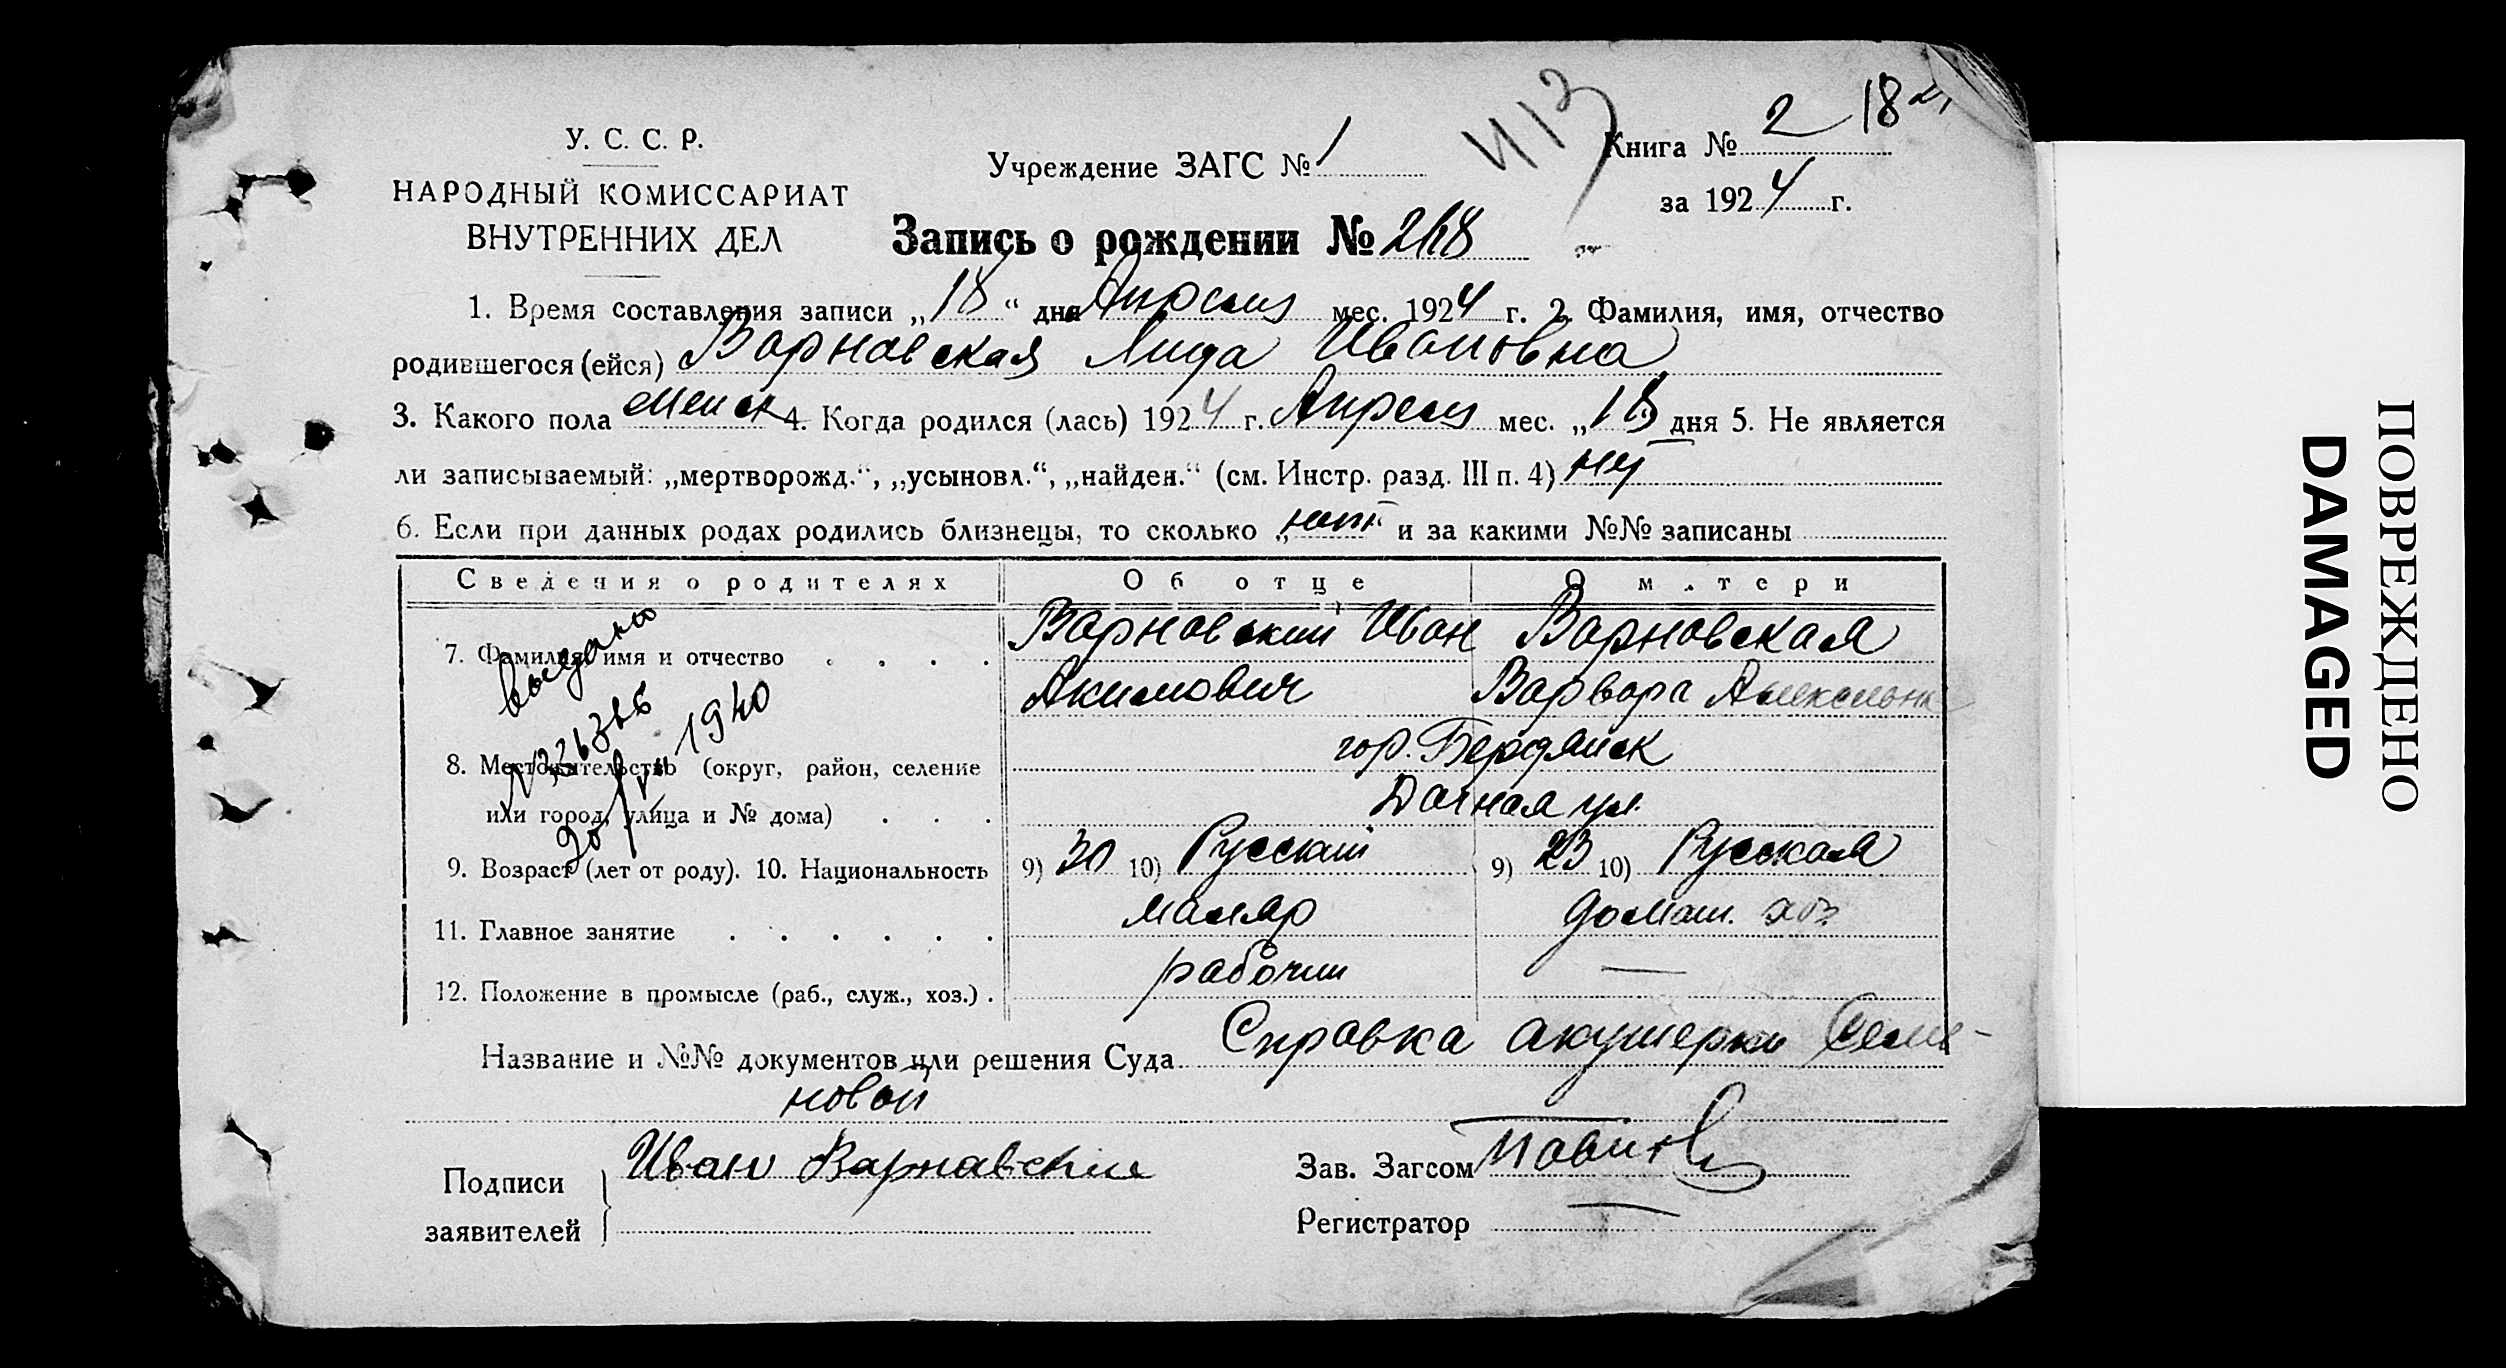 413
У. С. С. Р.
НАРОДНЫЙ КОМИССАРИАТ
ВНУТРЕННИХ ДЕЛ
Учреждение ЗАГС № 1
Книга № 2 18
за 1924 г.
Запись о рождении № 268
1. Время составления записи „18“ дня Апреля мес. 1924 г. 2. Фамилия, имя, отчество
родившегося (ейся) Варновская Лида Ивановна
3. Какого пола женск 4. Когда родился (лась) 1924 г. Апреля мес. „18 дня 5. Не является
ли записываемый: „мертворожд.“, „усыновл.“, „найден.“ (см. Инстр. разд. III п. 4) нет
6. Если при данных родах родились близнецы, то сколько „ и за какими №№ записаны
Сведения о родителях Об отце О м.тери
7. Фамилия, имя и отчество . . . . Варновский Иван Варновская
Акимович Варвара
8. Местожительство (округ, район, селение гор. Бердянск
или город, улица и № дома) . . . Дачная ул.
9. Возраст (лет от роду). 10. Национальность 9) 30 10) Русский 9) 23 10) Русская
11. Главное занятие . . . . . . маляр домаш. хоз
12. Положение в промысле (раб., служ., хоз.) . рабочий —
выдано
1940
Название и №№ документов или решения Суда Справка акушерки Семе-
новой
Подписи
заявителей
Иван Варнавский
Зав. Загсом
Регистратор —
ПОВРЕЖДЕНО
DAMAGED